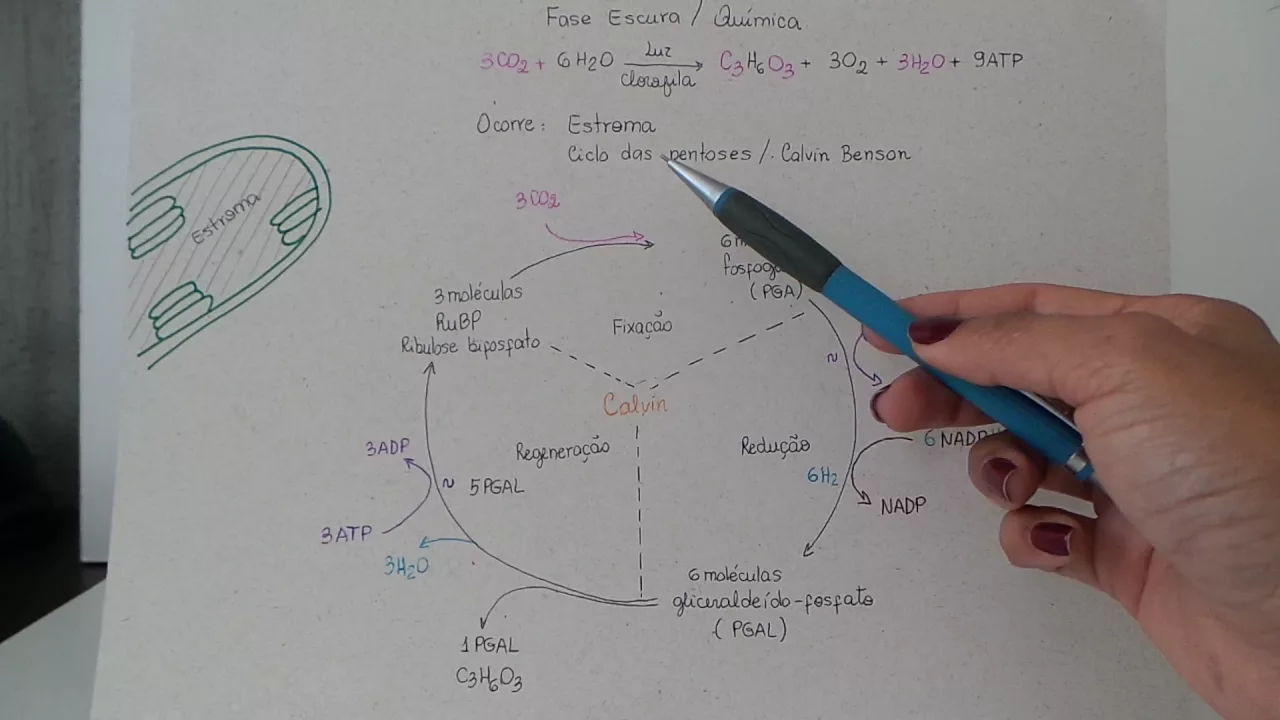 Fase Escura / Química
3CO2 + 6H2O Luz Clorofila C3H6O3 + 3O2 + 3H2O + 9ATP
Ocorre: Estroma
Ciclo das pentoses / Calvin Benson
Estroma
3CO2
(PGA)
3 moléculas
RuBP
Ribulose bifosfato
Fixação
~
Calvin
Regeneração
Redução
3ADP
~ 5PGAL
6H2
NADP
3ATP
3H2O
6 moléculas
gliceraldeído-fosfato
(PGAL)
1 PGAL
C3H6O3